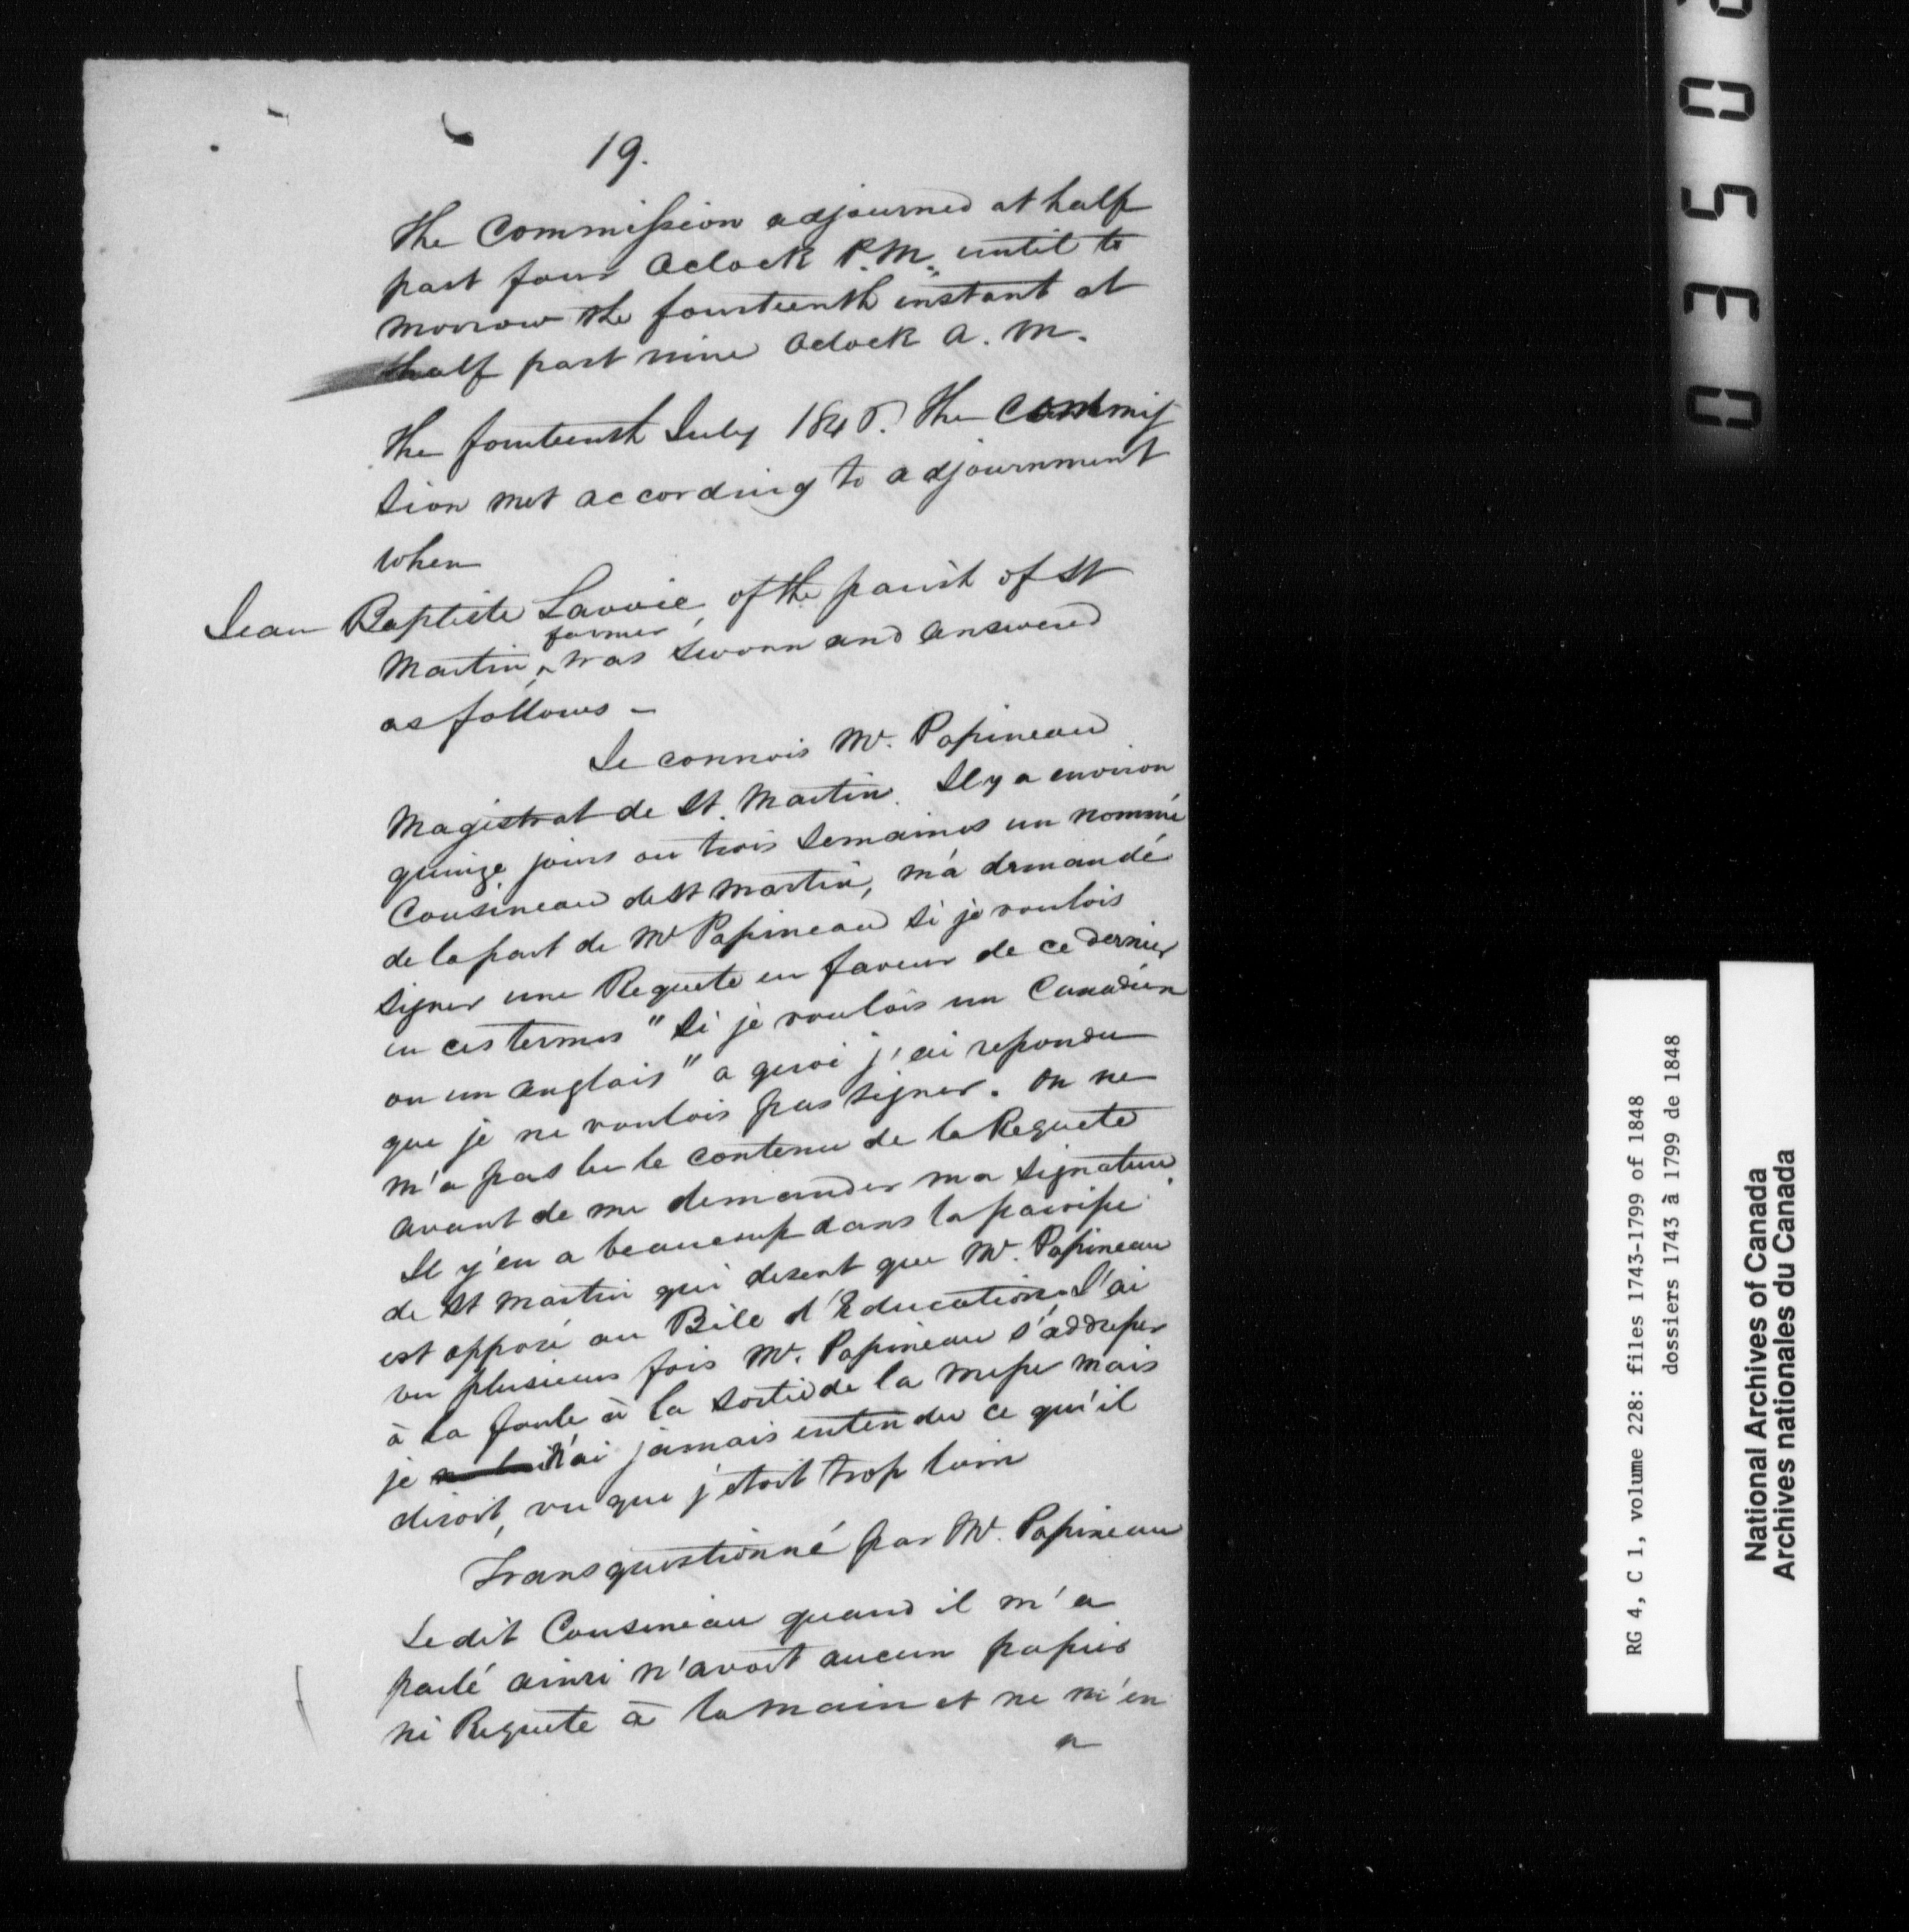 19.
The Commission adjourned at half
past four Oclock P.M. until to
morrow the fourteenth instant at
half past nine Oclock A.M.
The fourteenth July 1848. The Commis
sion met according to adjournment
when
Jean Baptiste Lavoie, of the parish of St
farmer
Martin, ^ was sworn and answered
as follows –
Je connois Mr. Papineau
Magistrat de St. Martin. Il y a environ
quinze jours ou trois semaines un nommé
Cousineau de St Martin, m'a demandé
de la part de Mr Papineau si je voulois
signer une Requete en faveur de ce dernier
en ces termes "Si je voulois un Canadien
ou un anglais" a quoi j'ai repondu
que je ne voulois pas signer. On ne
m'a pas lu le contenu de la Requete
avant de me demander ma signature.
Il y'en a beaucoup dans la paroisse
de St Martin qui disent que Mr. Papineau
est opposé au Bile d'Education. J'ai
vu plusieurs fois Mr. Papineau s'addresser
à la foule à la sortie de la messe mais
je n'ai jamais entendu ce qu'il
disoit, vu que j'etoit trop loin
Transquestionné par Mr. Papineau
Le dit Cousineau quand il m'a
parlé ainsi n'avoit aucun papier
ni Requete à la main et ne m'en
a
0350
RG 4, C 1, volume 228: files 1743-1799 of 1848
dossiers 1743 à 1799 de 1848
National Archives of Canada
Archives nationales du Canada